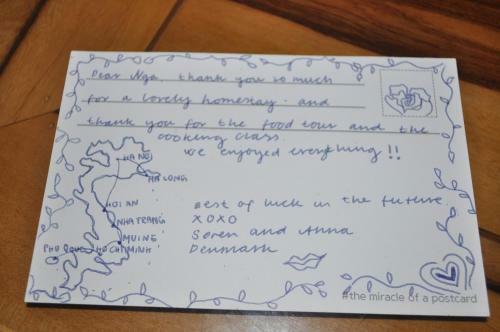 Dear Nga, thank you so much
for a lovely homestay. and
thank you for the food tour and the
cooking class.
we enjoyed everything !!
HA NOI
HA LONG
HOI AN
NHA TRANG
MUI NE
PHU QUOC
HO CHI MINH
Best of luck in the future.
XOXO
Søren and Anna
Denmark
#the miracle of a postcard